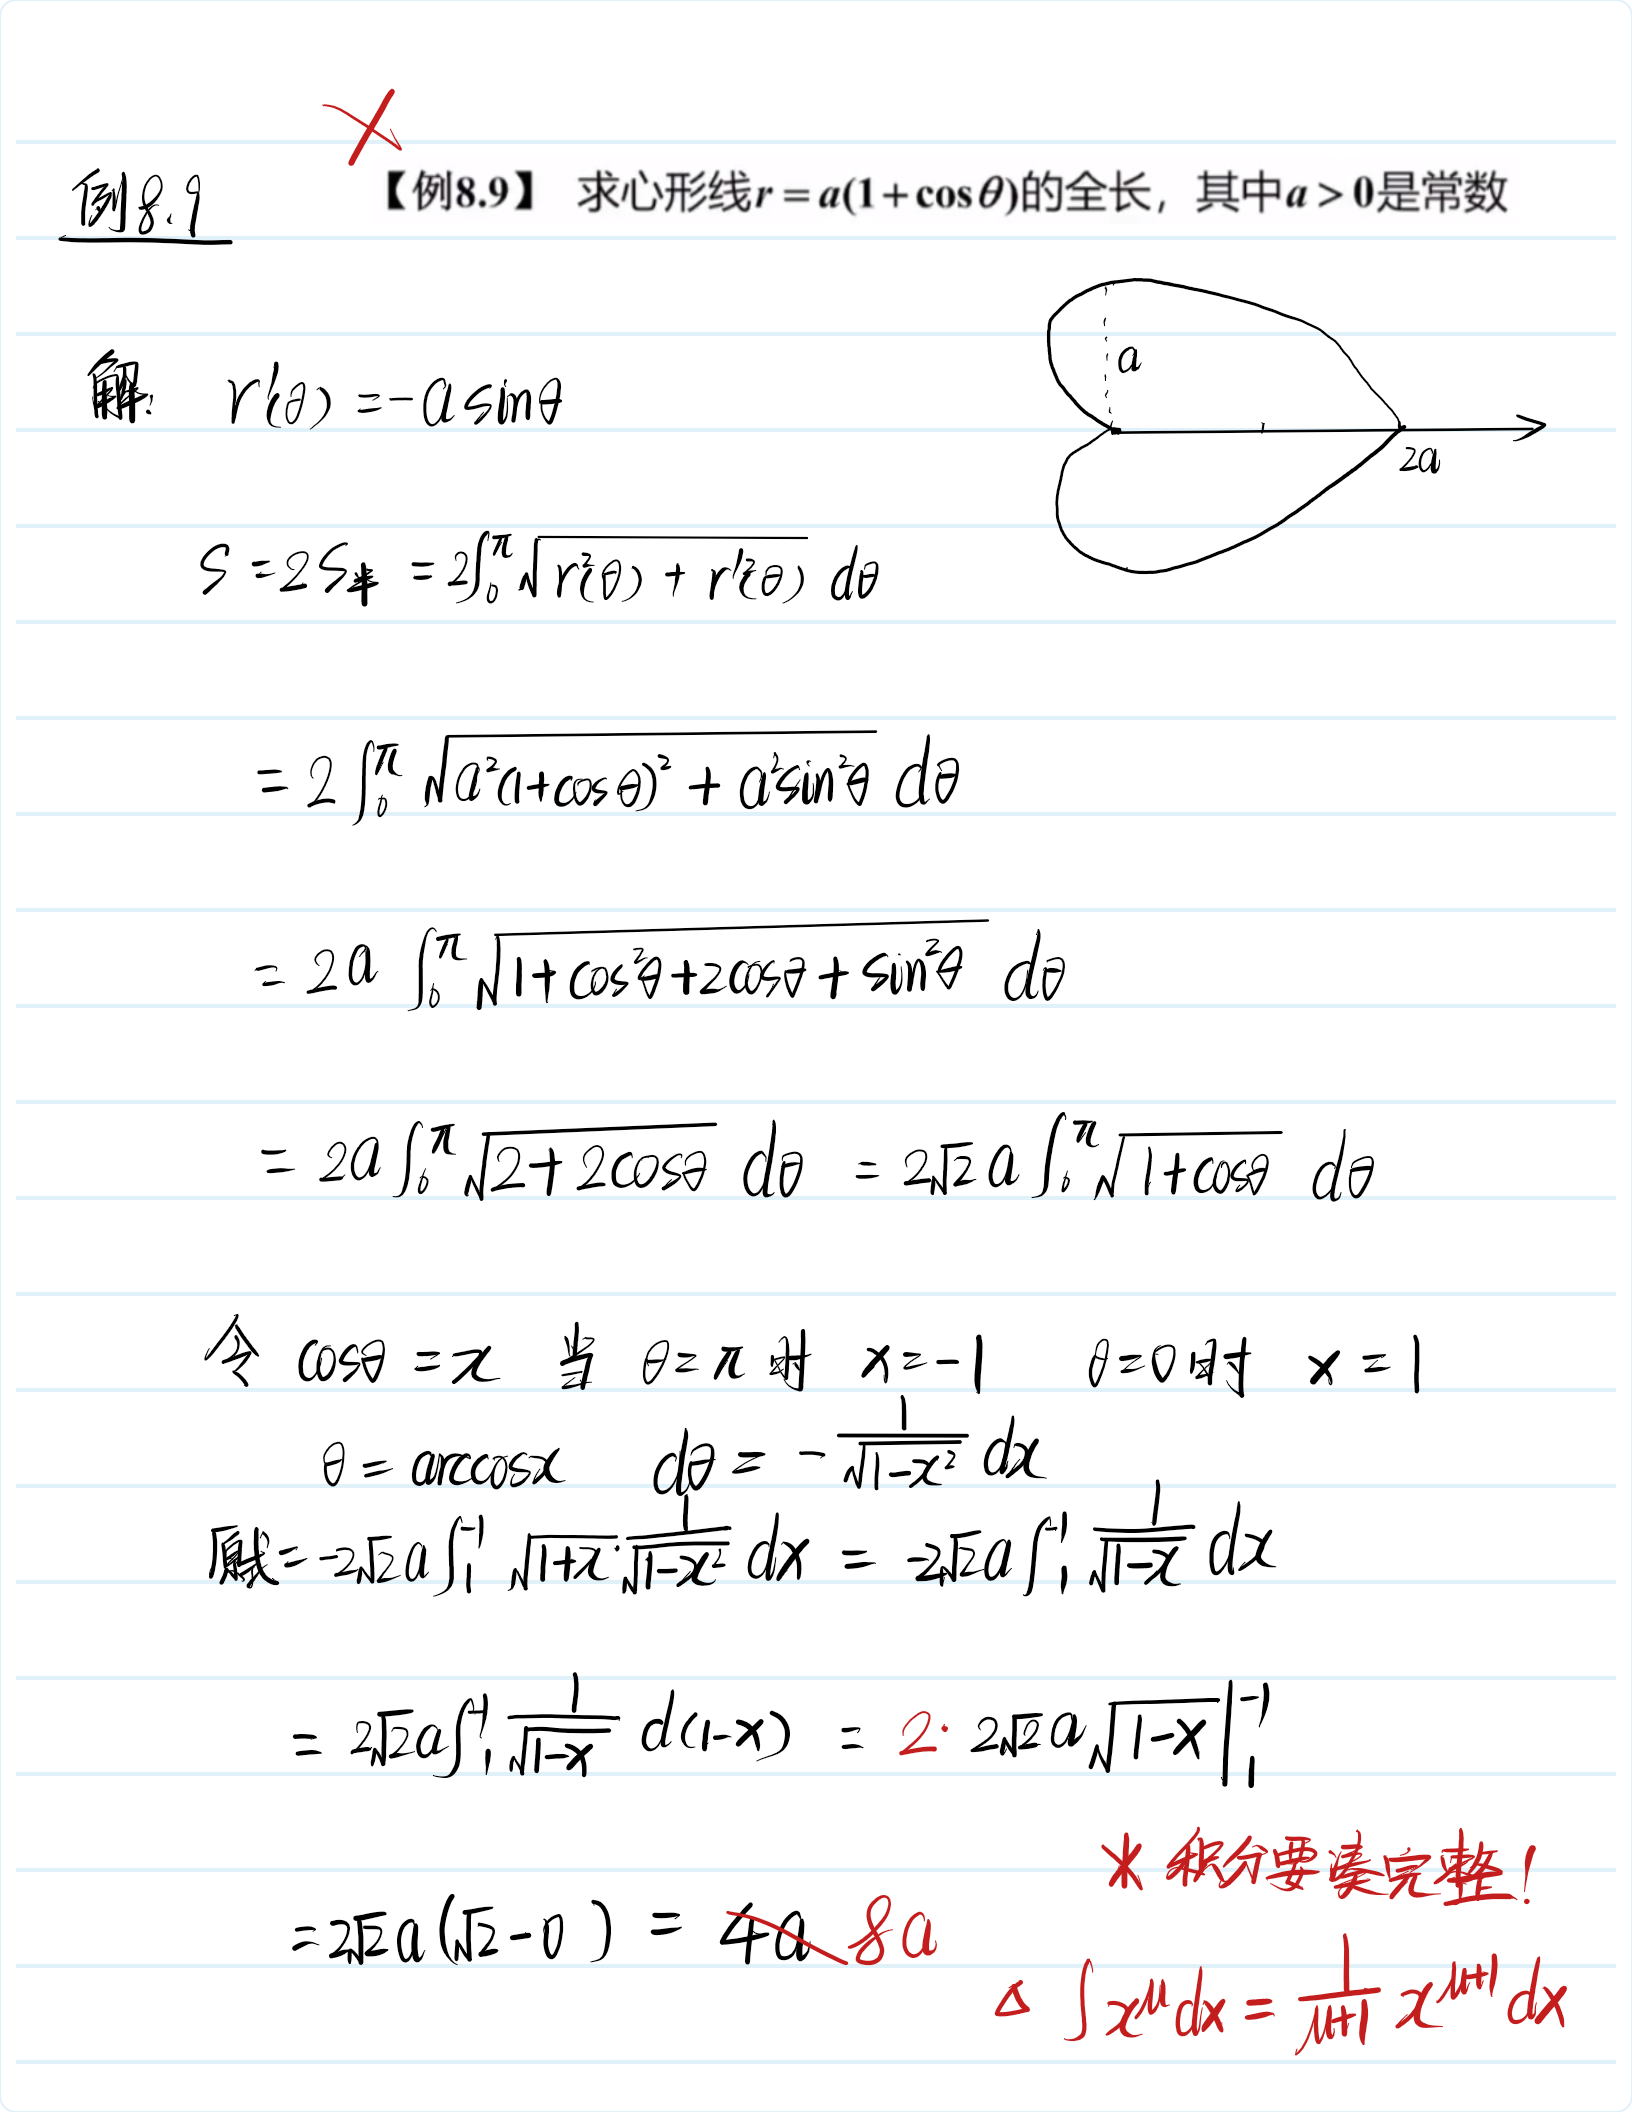 例8.9
【例8.9】 求心形线r = a(1+cosθ)的全长，其中a > 0是常数
a
2a
解: r'(θ) = -a sinθ
S = 2S半 = 2∫₀^π √(r²(θ) + r'²(θ)) dθ
= 2∫₀^π √(a²(1+cosθ)² + a²sin²θ) dθ
= 2a ∫₀^π √(1+cos²θ+2cosθ+sin²θ) dθ
= 2a∫₀^π √(2+2cosθ) dθ = 2√2 a∫₀^π √(1+cosθ) dθ
令 cosθ = x 当 θ=π 时 x=-1 θ=0时 x=1
θ = arccosx dθ = - 1/√(1-x²) dx
原式= -2√2 a∫₁^-1 √(1+x) · 1/√(1-x²) dx = -2√2 a∫₁^-1 1/√(1-x) dx
= 2√2 a∫₁^-1 1/√(1-x) d(1-x) = 2· 2√2 a√(1-x) |₁^-1
* 积分要凑完整!
= 2√2 a(√2-0) = 4a 8a
△ ∫x^μ dx = 1/(μ+1) x^(μ+1) dx